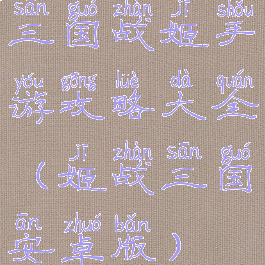 sān guó zhàn jī shǒu
三国战姬手
yóu gōng lüè dà quán
游攻略大全
jī zhàn sān guó
(姬战三国
ān zhuó bǎn
安卓版)